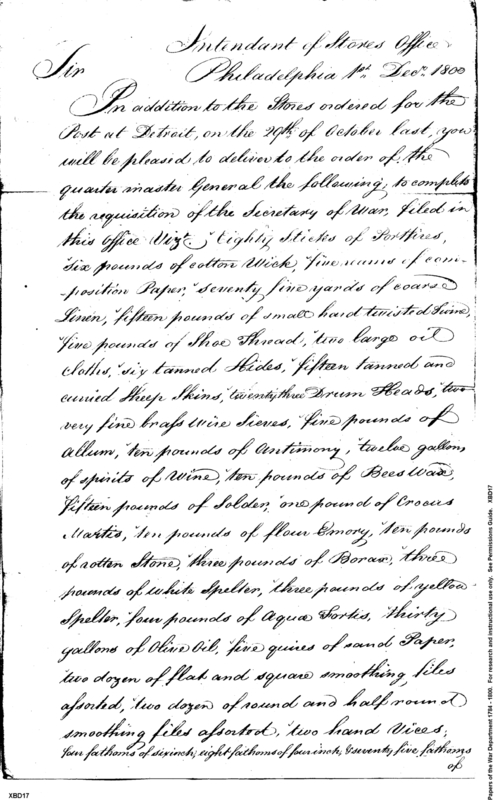 Intendant of Stores Office
Sir Philadelphia 1st. Decr. 1800
In addition to the Stores ordered for the
Post at Detroit, on the 29th of October last, you
will be pleased to deliver to the order of the
quarter master General the following, to complete
the requisition of the Secretary of War, filed in
this Office Vizt. "Eighty Sticks of Portfires,
"Six pounds of cotton Wick, "five reams of com-
-position Paper, "seventy five yards of coarse
Linen, "fifteen pounds of small hard twisted Twine,
"five pounds of Shoe Thread, "two large oil
cloths, "six tanned Hides, "fifteen tanned and
curried Sheep Skins, "twenty three Drum Heads, "two
very fine brass Wire Sieves, "five pounds of
Allum, "ten pounds of Antimony, "twelve gallons
of spirits of Wine, "ten pounds of Bees Wax,
"fifteen pounds of Solder, "one pound of Crocus
Martis, "ten pounds of flour Emory, "ten pounds
of rotten Stone, "three pounds of Borax, "three
pounds of white Spelter, "three pounds of yellow
Spelter, "four pounds of Aqua Fortis, "thirty
gallons of Olive Oil, "five quires of sand Paper,
"two dozen of flat and square smoothing files
assorted, "two dozen of round and half round
smoothing files assorted, "two hand Vices,
four fathoms of six inch; eight fathoms of four inch; & seventy five fathoms
of
XBD17
Papers of the War Department 1784 - 1800. For research and instructional use only. See Permissions Guide. XBD17